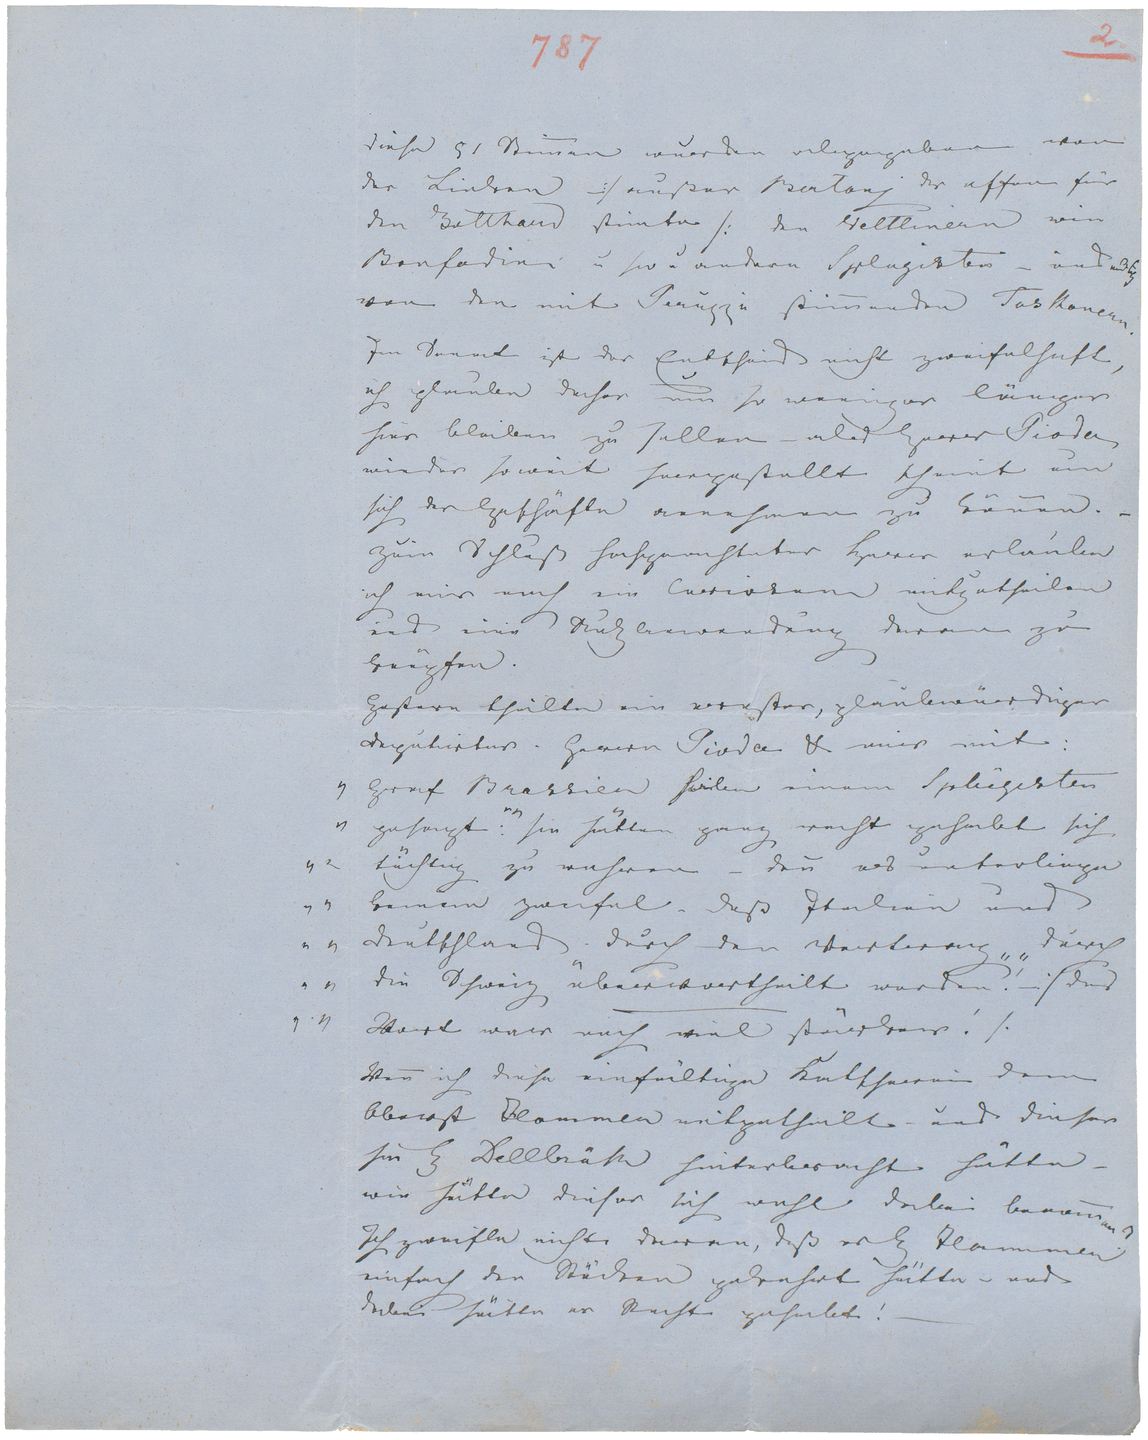 787
2.
diese 51 Stimmen wurden abgegeben von
der Linken :/ außer Bertani der offen für
den Gotthard stimte /: den Veltlinern wie
Bonfadini u sow u andern Splügisten – und
von den mit Peruzzi stim̅enden Toskanern.
Im Senat ist der Entscheid nicht zweifelhaft,
ich glaube daher um so weniger länger
hier bleiben zu sollen – als Herr Pioda
wieder soweit hergestellt scheint um
sich der Geschäfte annehmen zu kön̅en. –
Zum Schluß hochgeachteter Herr erlaube
ich mir noch ein Curiosum mitzutheilen
und eine Nutzanwendung daran zu
knüpfen.
Gestern theilte ein ernster, glaubwürdiger
Deputirter. Herrn Pioda & mir mit:
" Graf Brassier habe einem Splügisten
" gesagt: "" sie hätten ganz recht gehabt sich
" " tüchtig zu wehren – den̅ es unterliege
" " keinem Zweifel – daß Italien und
" " Deutschland durch den Vertrag "" durch
" " die Schweiz übervortheilt worden! :/ das
" " Wort war noch viel stärker! /:
Wen̅ ich diese einfältige Klatscherei dem
Oberst Hammer mitgetheilt – und dieser
sie H Dellbrük hinterbracht hätte –
wie hätte dieser sich wohl dabei benom̅en?
Ich zweifle nicht daran, daß er H Hammer
einfach den Rücken gekehrt hätte – und
dabei hätte er Recht gehabt! –